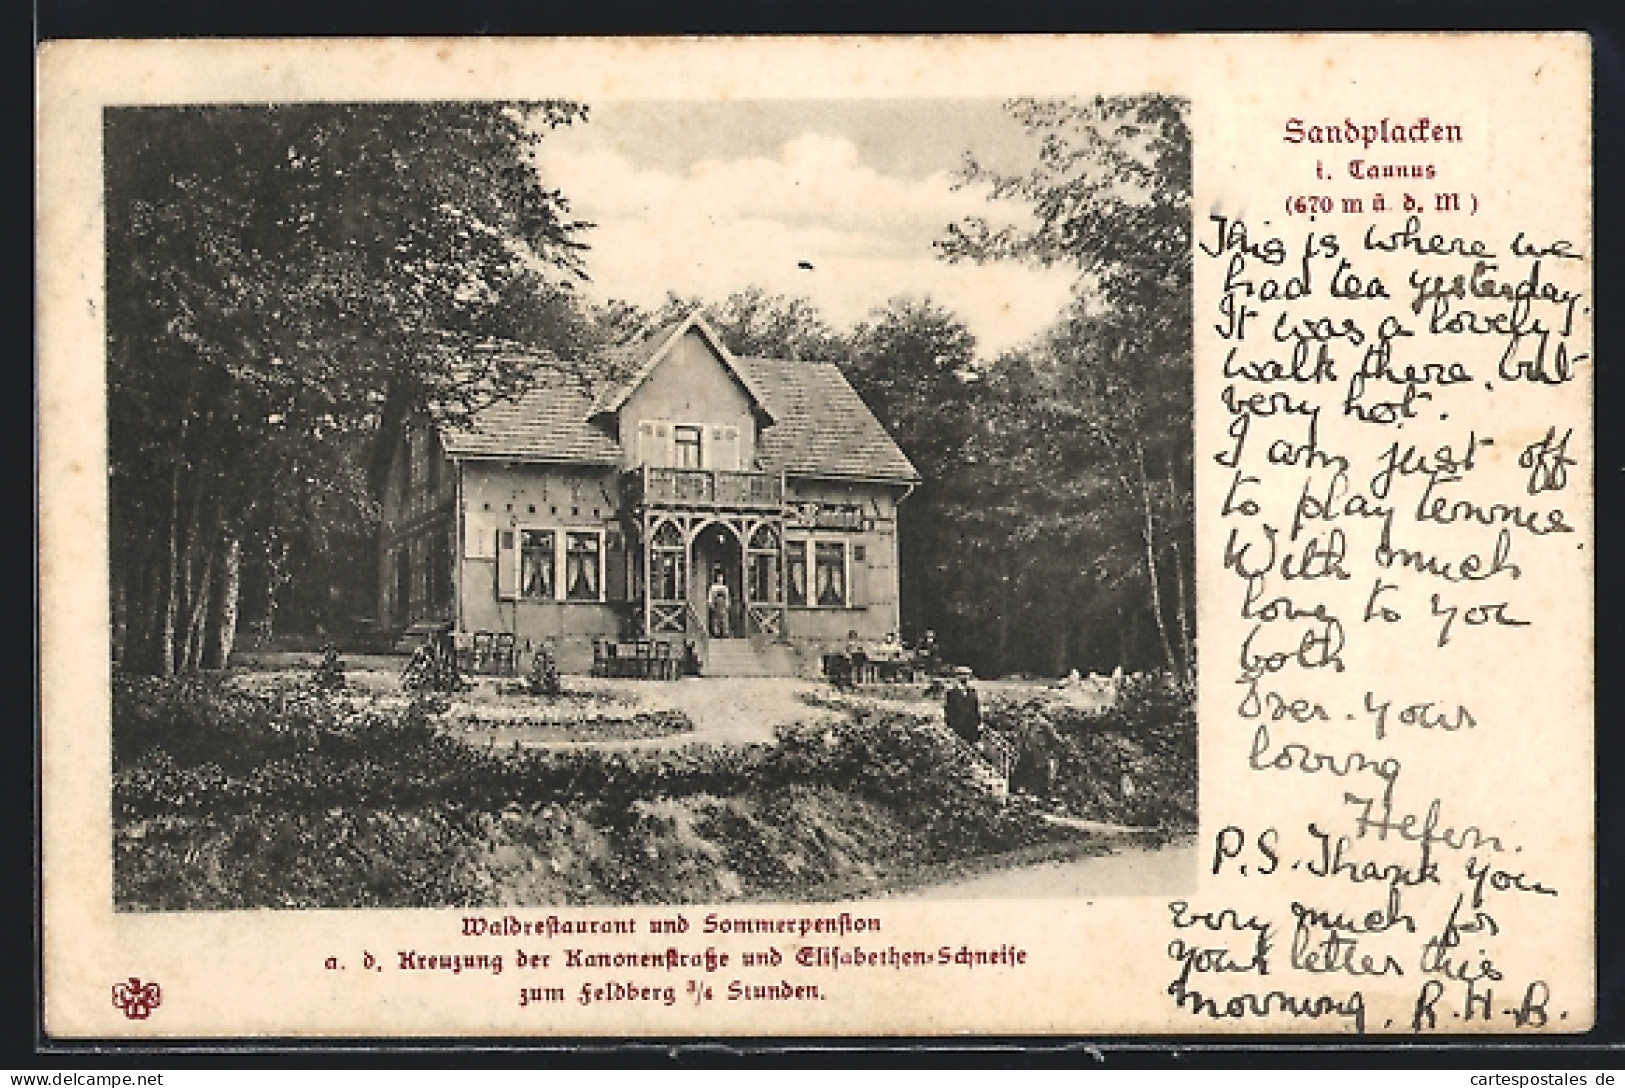 Sandplacken
i. Taunus
(670 m ü. d. M)
This is where we
had tea yesterday.
It was a lovely
walk there, but
very hot.
I am just off
to play tennis.
With much
love to you
both
Ever your
loving
Helen.
P.S. Thank you
very much for
your letter this
morning. R.H.B.
Waldrestaurant und Sommerpension
a. d. Kreuzung der Kanonenstraße und Elisabethen-Schneise
zum Feldberg 3/4 Stunden.
cartespostales de